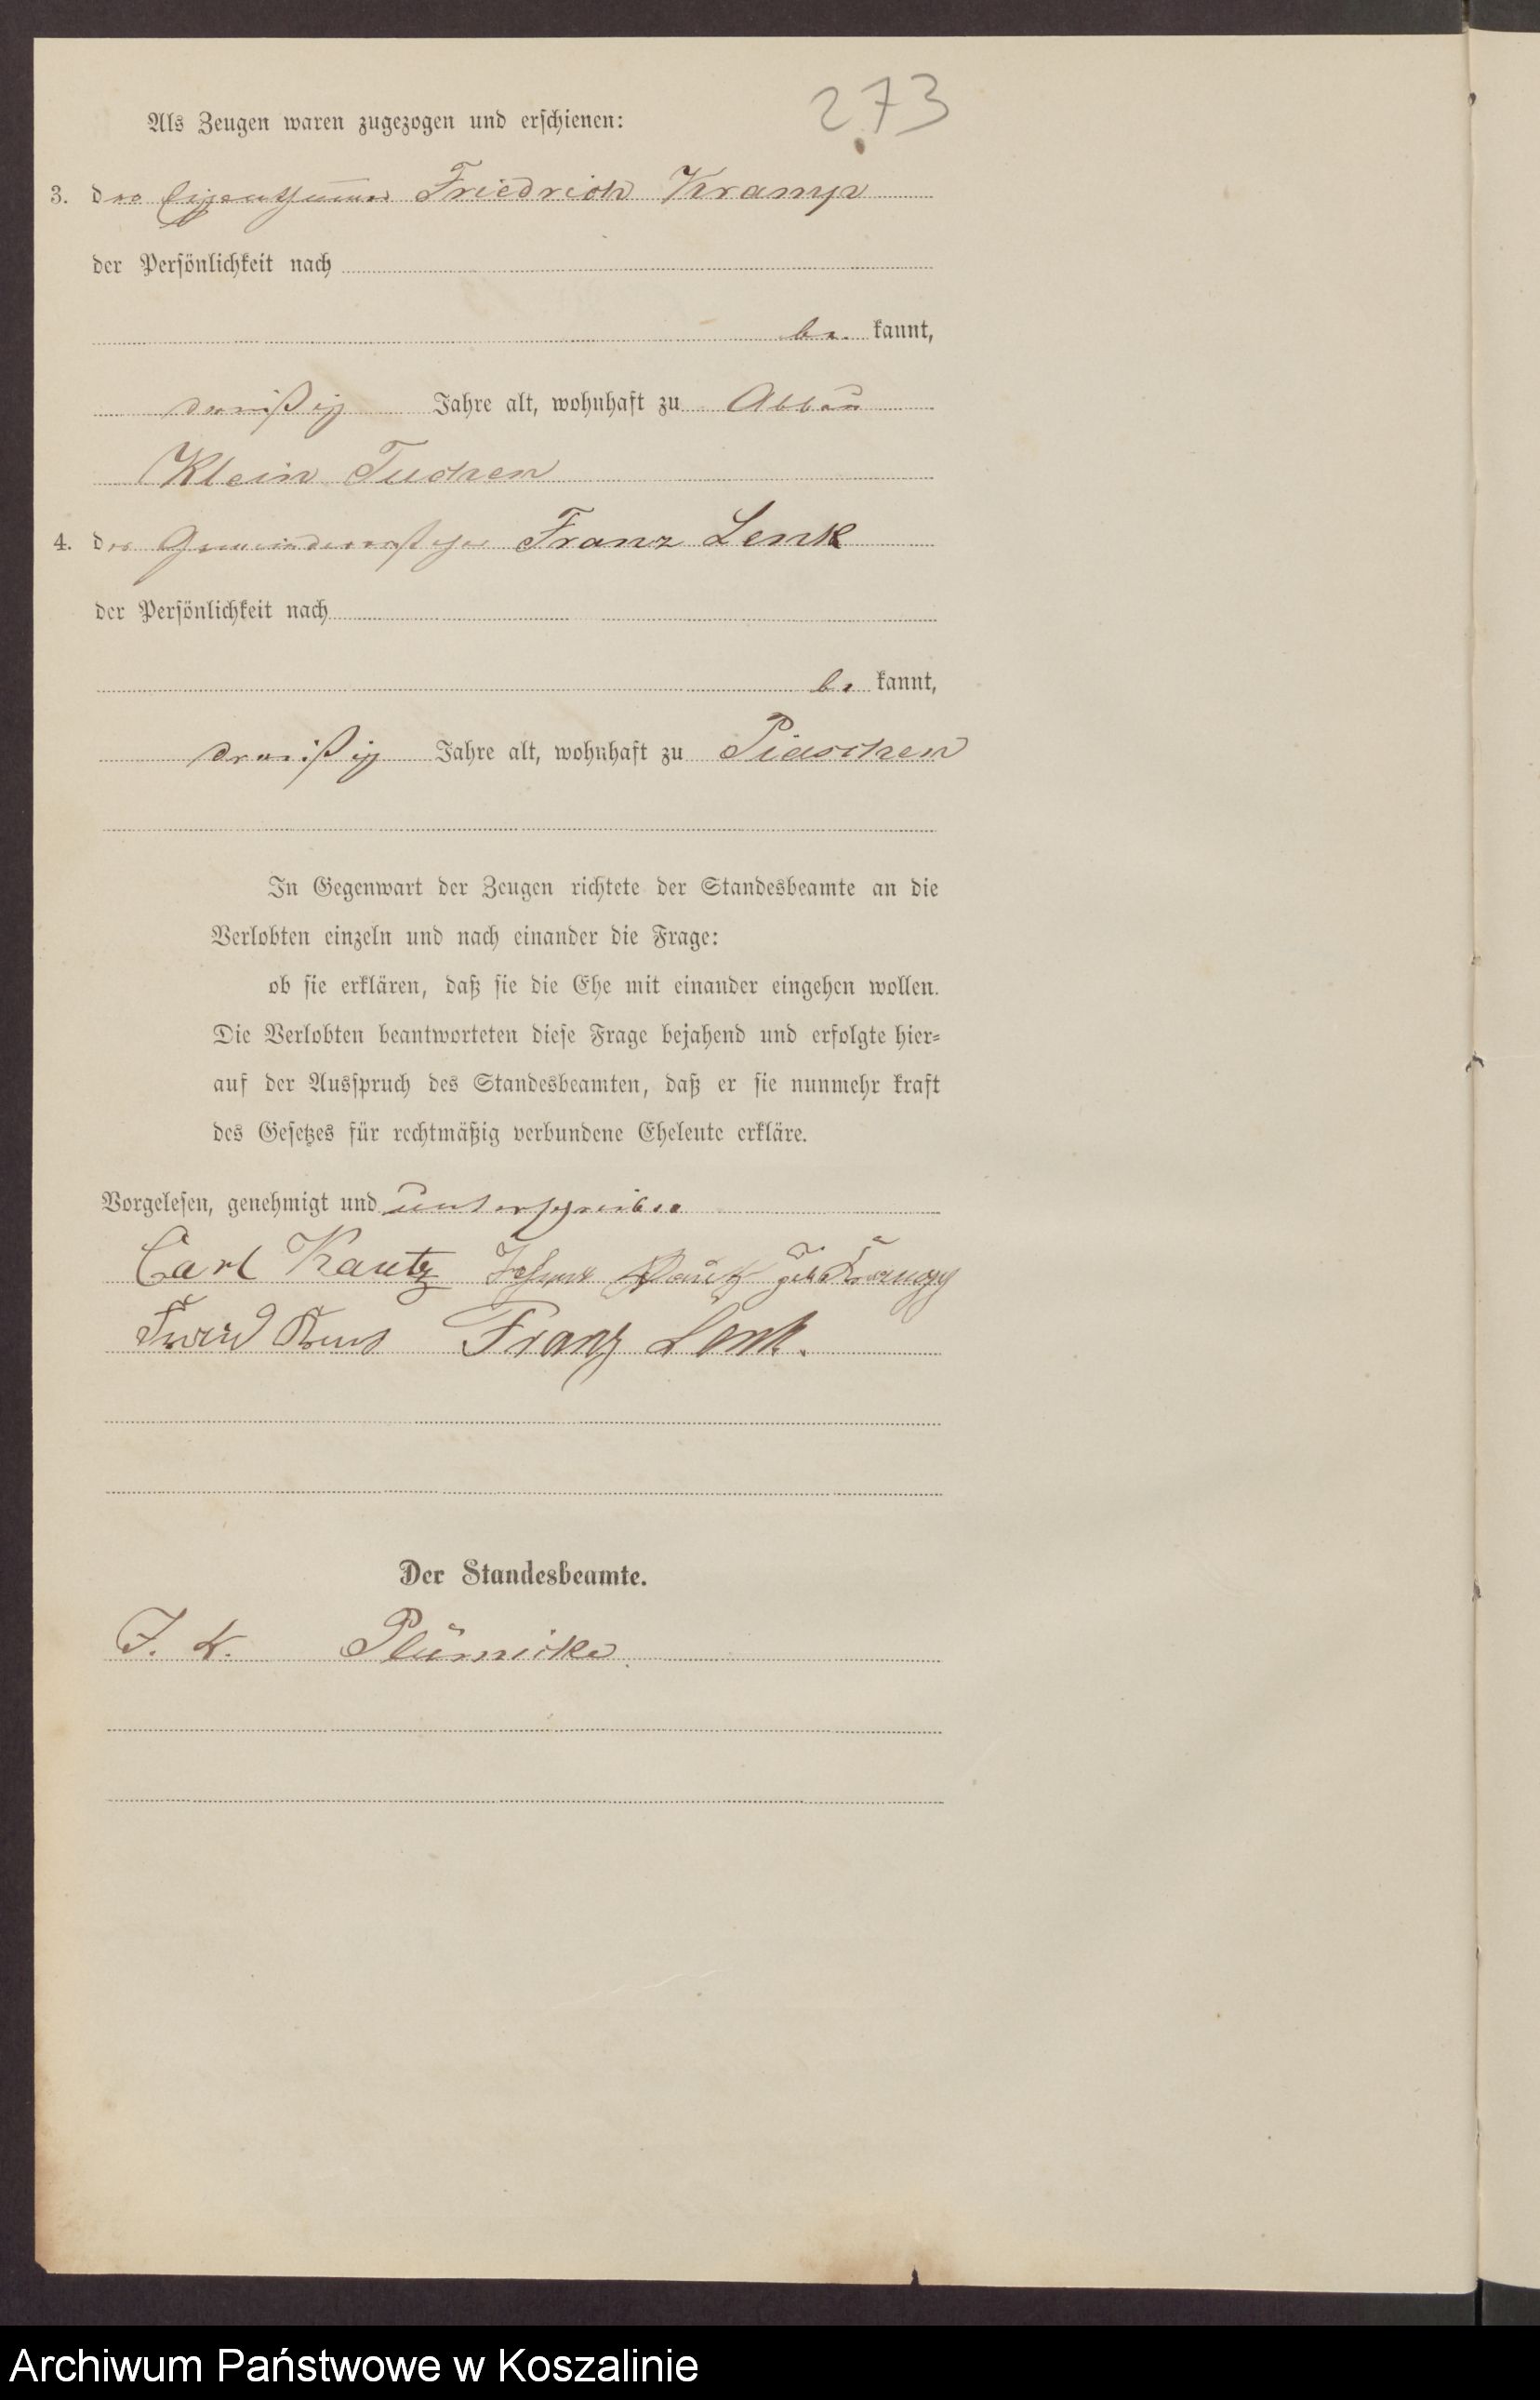 273
Als Zeugen waren zugezogen und erschienen:
3. der Eigenthümer Friedrich Kramp
der Persönlichkeit nach
be kannt,
dreißig Jahre alt, wohnhaft zu Abbau
Klein Tuchen
4. der Gemeindevorsteher Franz Lenk
der Persönlichkeit nach
be kannt,
dreißig Jahre alt, wohnhaft zu Piaschen
In Gegenwart der Zeugen richtete der Standesbeamte an die
Verlobten einzeln und nach einander die Frage:
ob sie erklären, daß sie die Ehe mit einander eingehen wollen.
Die Verlobten beantworteten diese Frage bejahend und erfolgte hier=
auf der Ausspruch des Standesbeamten, daß er sie nunmehr kraft
des Gesetzes für rechtmäßig verbundene Eheleute erkläre.
Vorgelesen, genehmigt und unterschrieben
Carl Kautz geb
Franz Lenk.
Der Standesbeamte.
J. V. Plümicke
Archiwum Państwowe w Koszalinie